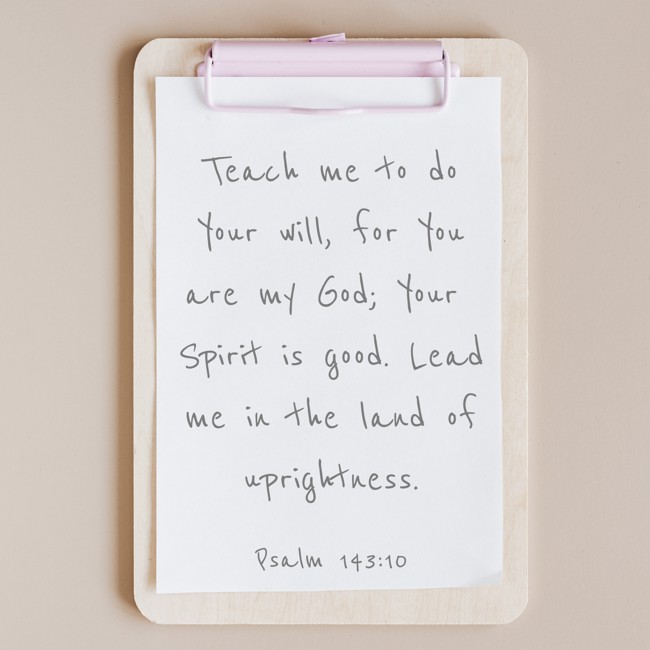 Teach me to do
Your will, for You
are my God; Your
Spirit is good. Lead
me in the land of
uprightness.
Psalm 143:10